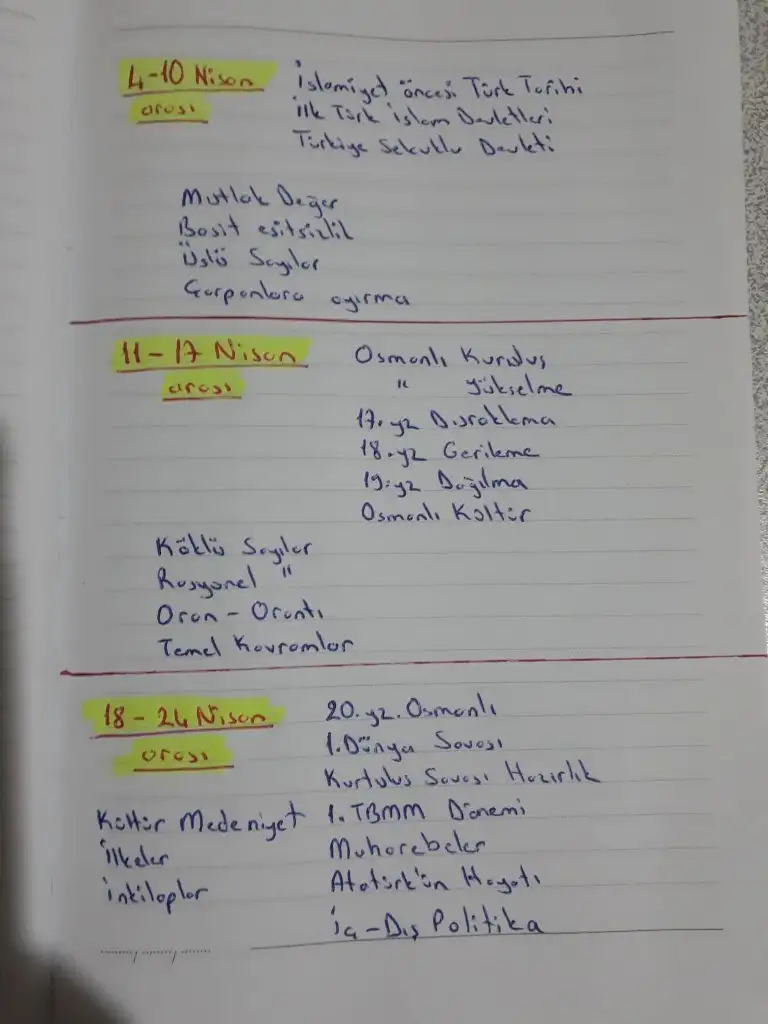 4-10 Nisan
arası
İslamiyet öncesi Türk Tarihi
İlk Türk İslam Devletleri
Türkiye Selçuklu Devleti
Mutlak Değer
Basit eşitsizlik
Üslü Sayılar
Çarpanlara ayırma
11-17 Nisan
arası
Osmanlı Kuruluş
" Yükselme
17. yz Duraklama
18. yz Gerileme
19. yz Dağılma
Osmanlı Kültür
Köklü Sayılar
Rasyonel "
Oran - Orantı
Temel Kavramlar
18-24 Nisan
arası
20. yz. Osmanlı
1. Dünya Savaşı
Kurtuluş Savaşı Hazırlık
1. TBMM Dönemi
Muharebeler
Atatürk'ün Hayatı
İç-Dış Politika
Kültür Medeniyet
İlkeler
İnkılaplar